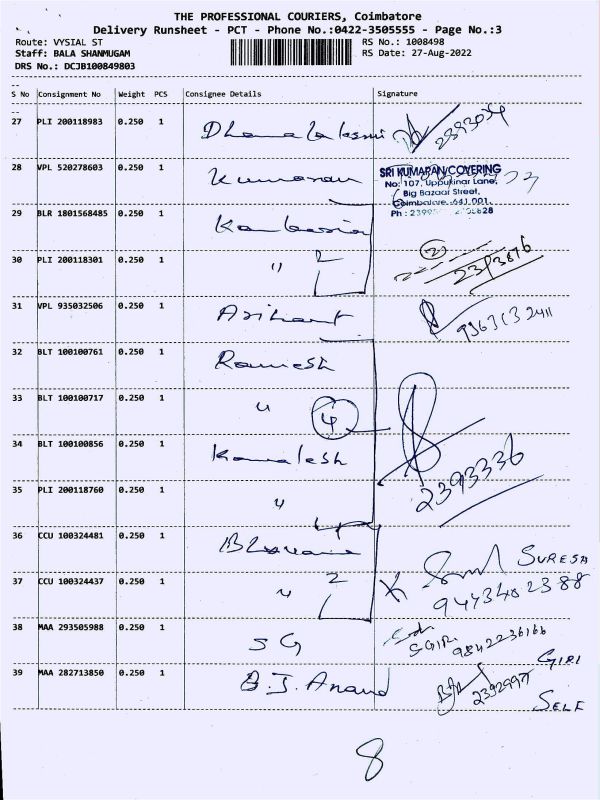 THE PROFESSIONAL COURIERS, Coimbatore
Delivery Runsheet - PCT - Phone No.:0422-3505555 - Page No.:3
Route: VYSIAL ST RS No.: 1008498
Staff: BALA SHANMUGAM RS Date: 27-Aug-2022
DRS No.: DCJB100849803
S No Consignment No Weight PCS Consignee Details Signature
27 PLI 200118983 0.250 1 Dhanalaksmi
28 VPL 520278603 0.250 1 Kumaran
SRI KUMARAN COVERING
No: 107, Uppukinar Lane,
Big Bazaar Street,
Coimbatore - 641 001.
29 BLR 1801568485 0.250 1
30 PLI 200118301 0.250 1 " 2 2 2393876
31 VPL 935032506 0.250 1 Arihant
32 BLT 100100761 0.250 1 Ramesh
33 BLT 100100717 0.250 1 " 4
34 BLT 100100856 0.250 1 Kamalesh
2393336
35 PLI 200118760 0.250 1 "
36 CCU 100324481 0.250 1 SURESH
37 CCU 100324437 0.250 1 " 2 9443402388
38 MAA 293505988 0.250 1 SG SGIRI 9842236166
GIRI
39 MAA 282713850 0.250 1 B.J. Anand
SELF
8